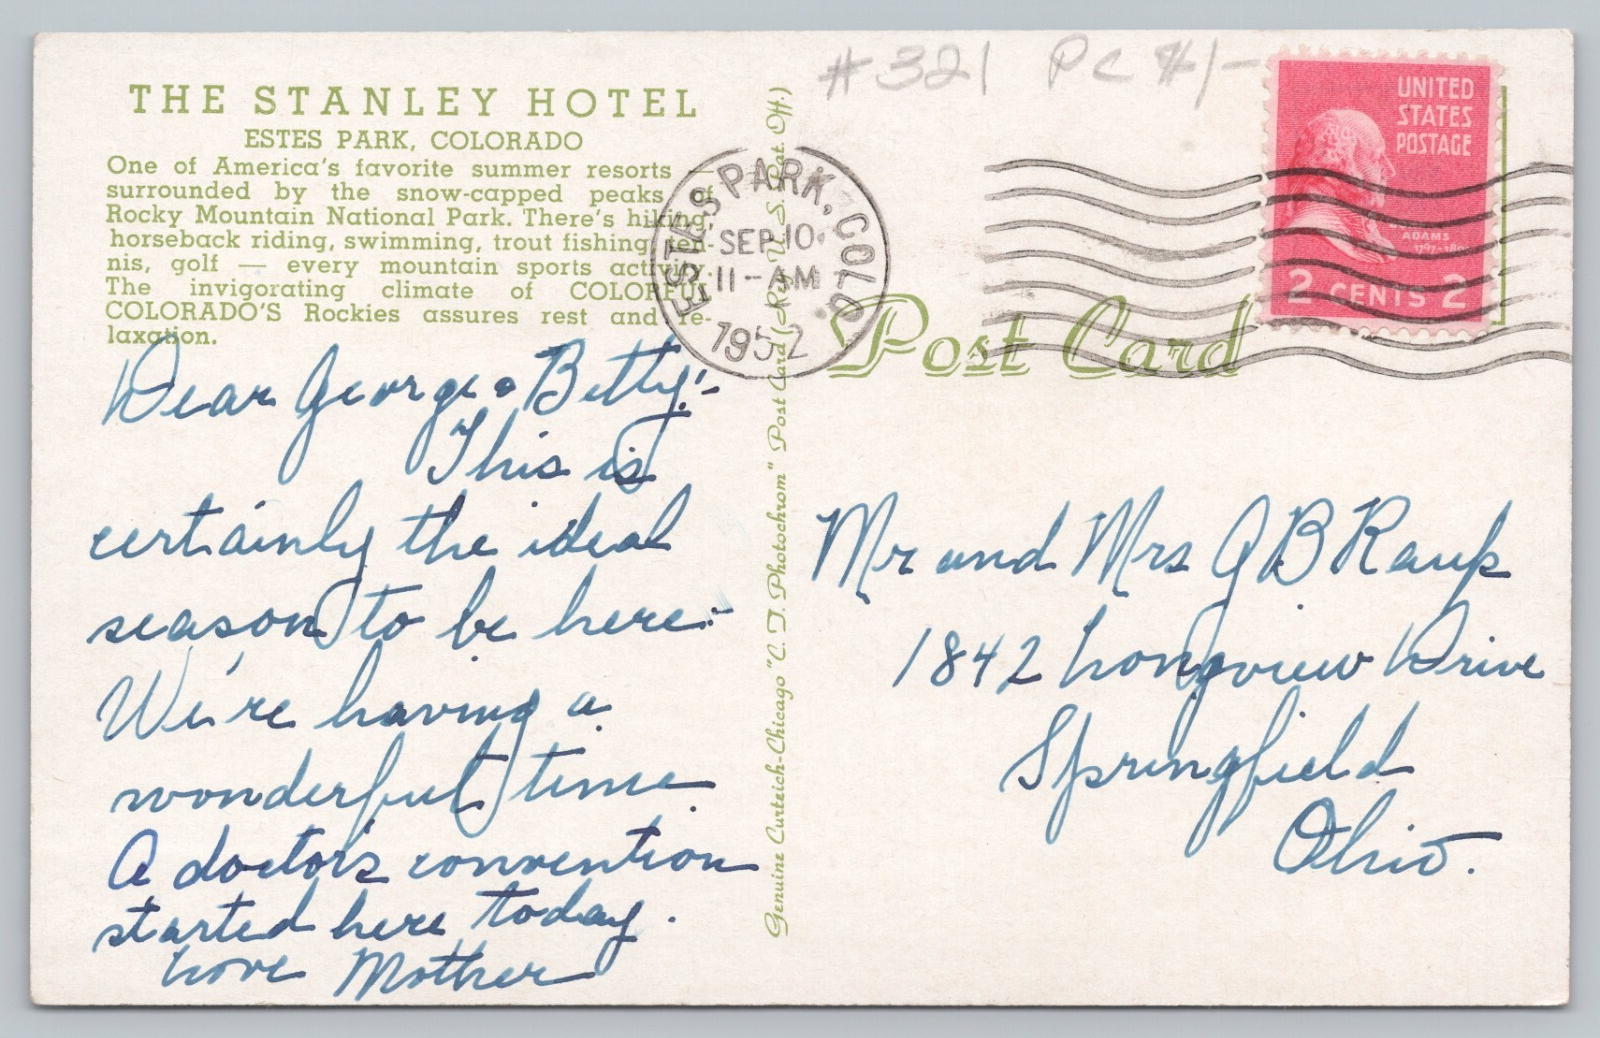 #321 PC #1-
THE STANLEY HOTEL
ESTES PARK, COLORADO
One of America's favorite summer resorts —
surrounded by the snow-capped peaks of
Rocky Mountain National Park. There's hiking,
horseback riding, swimming, trout fishing, ten-
nis, golf — every mountain sports activity.
The invigorating climate of COLORFUL
COLORADO'S Rockies assures rest and re-
laxation.
Dear George & Betty:-
This is
certainly the ideal
season to be here.
We're having a
wonderful time.
A doctor's convention
started here today.
Love Mother
Genuine Curteich-Chicago "C. T. Photochrom" Post Card (Reg. U. S. Pat. Off.)
ESTES PARK, COLO.
SEP 10
11-AM
1952
UNITED
STATES
POSTAGE
ADAMS
2 CENTS 2
Post Card
Mr and Mrs G B Raup
1842 Longview Drive
Springfield
Ohio.